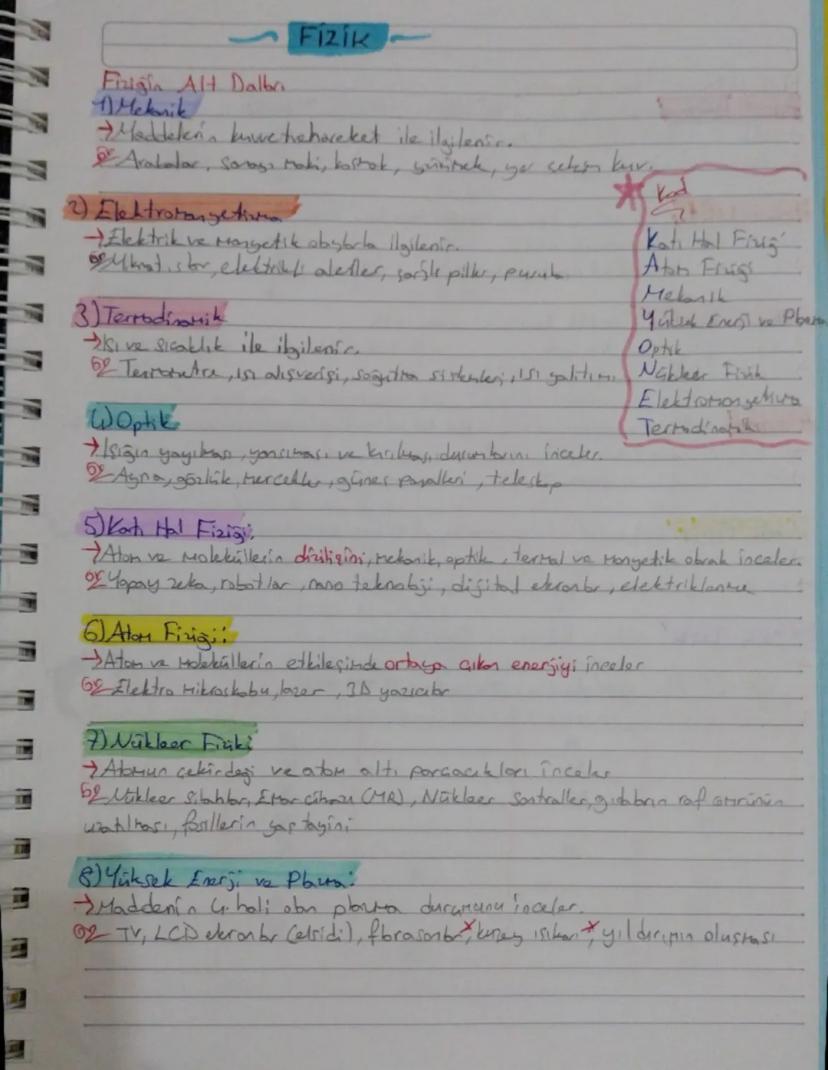 Fizik
Fiziğin Alt Dalları
1) Mekanik
→ Maddelerin kuvvet hareket ile ilgilenir.
ör Arabalar, yürümek, yer çekim kuv.
2) Elektromanyetizma
→ Elektrik ve Manyetik olaylarla ilgilenir.
ör Mıknatıslar, elektrikli aletler, şarjlı piller, pusula
3) Termodinamik
→ Isı ve sıcaklık ile ilgilenir.
ör Termometre, ısı alışverişi, soğutma sistemleri, ısı yalıtımı
4) Optik
→ Işığın yayılması, yansıması ve kırılması durumlarını inceler.
ör Ayna, gözlük, mercekler, güneş panelleri, teleskop
5) Katı Hal Fiziği:
→ Atom ve Moleküllerin dizilişini, mekanik, optik, termal ve manyetik olarak inceler.
ör Yapay zeka, robotlar, nano teknoloji, dijital ekranlar, elektriklenme
6) Atom Fiziği:
→ Atom ve Moleküllerin etkileşimde ortaya çıkan enerjiyi inceler
ör Elektro Mikroskobu, lazer, 3D yazıcılar
7) Nükleer Fiziki
→ Atomun çekirdeği ve atom altı parçacıkları inceler
ör Nükleer Silahlar, Emar Cihazı (MR), Nükleer Santraller, gıdaların raf ömrünün
uzatılması, fosillerin yaş tayini
8) Yüksek Enerji ve Plazma:
→ Maddenin 4. hali olan plazma durumunu inceler.
ör TV, LCD ekranlar (elsidi), florasanlar, kuzey ışıkları, yıldırımın oluşması
* Kod
Katı Hal Fiziği
Atom Fiziği
Mekanik
Yüksek Enerji ve Plazma
Optik
Nükleer Fizik
Elektromanyetizma
Termodinamik